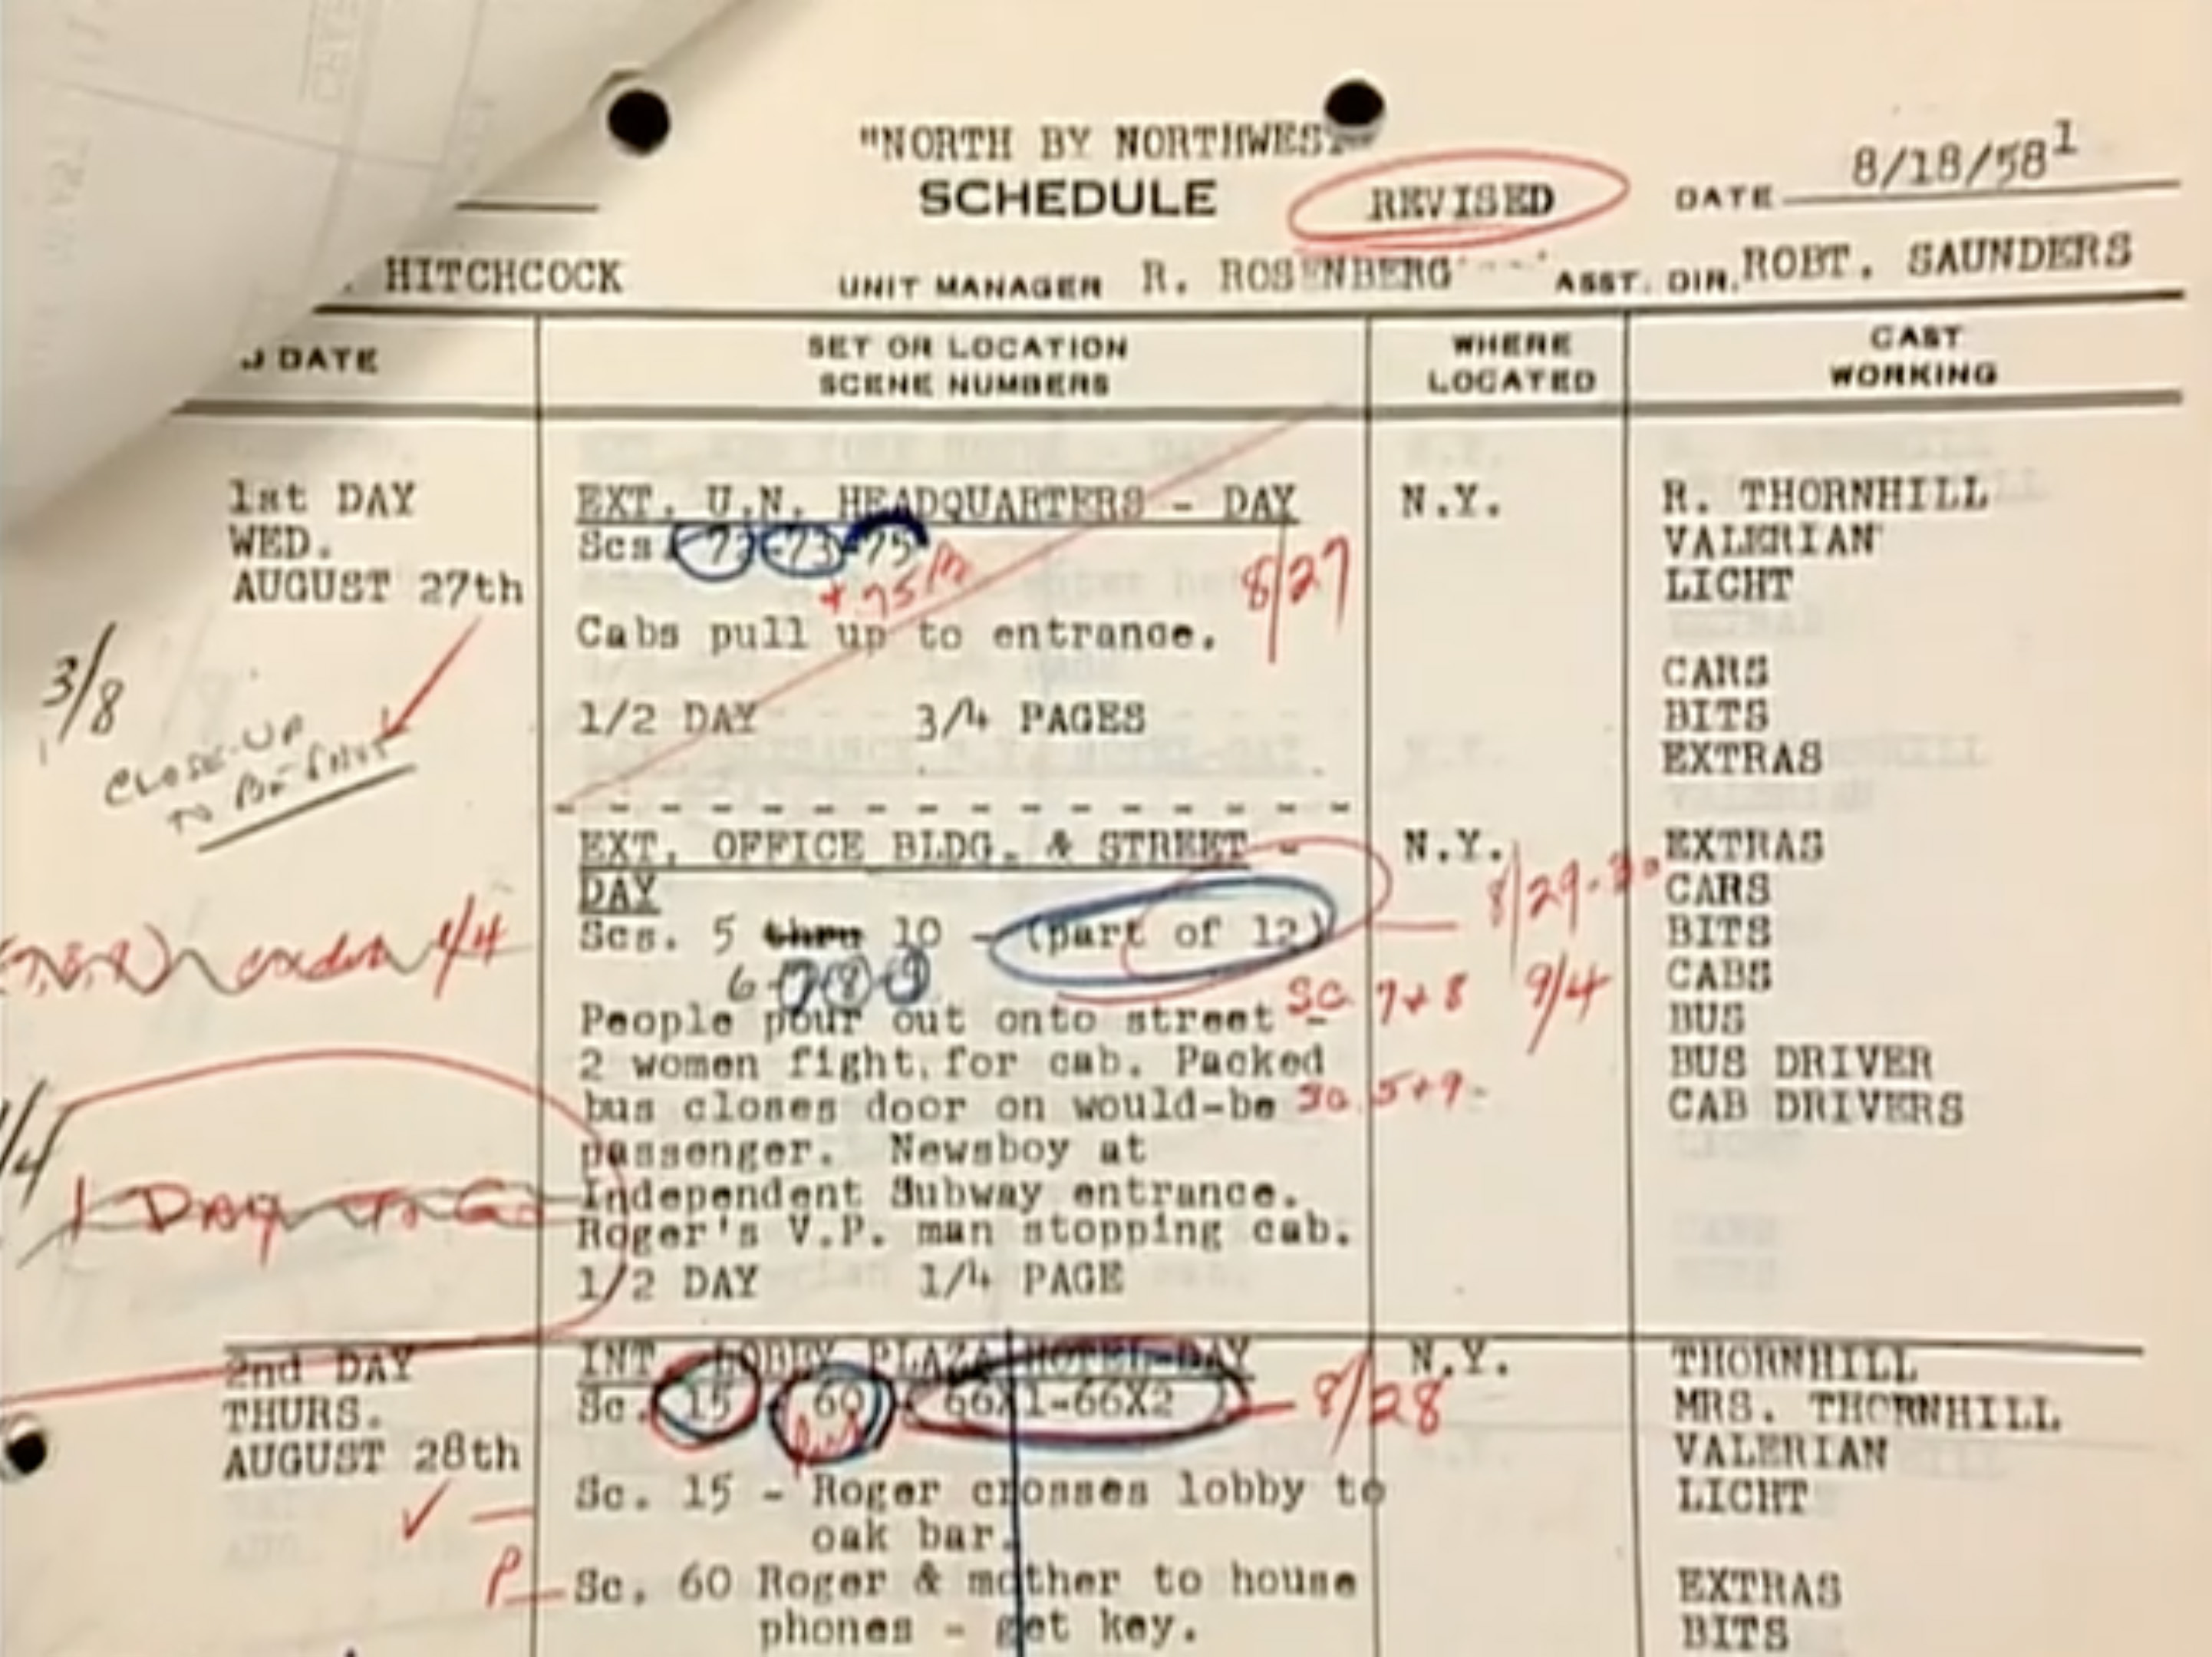 "NORTH BY NORTHWEST
SCHEDULE REVISED DATE 8/18/58 1
HITCHCOCK UNIT MANAGER R. ROSENBERG ASST. DIR. ROBT. SAUNDERS
DATE SET OR LOCATION WHERE CAST
SCENE NUMBERS LOCATED WORKING
1st DAY EXT. U.N. HEADQUARTERS - DAY N.Y. R. THORNHILL
WED. Scs. 73 75 VALERIAN
AUGUST 27th 8/27 LICHT
Cabs pull up to entrance.
3/8 CARS
1/2 DAY 3/4 PAGES BITS
CLOSE-UP EXTRAS
TO BE
EXT. OFFICE BLDG. & STREET - N.Y. EXTRAS
DAY 8/29-30 CARS
Scs. 5 thru 10 - (part of 12) BITS
1/4 6-7 8 9 Sc. 7+8 9/4 CABS
People pour out onto street - BUS
2 women fight for cab. Packed BUS DRIVER
bus closes door on would-be Sc. 5+9- CAB DRIVERS
passenger. Newsboy at
/4 1 DAY To Go Independent Subway entrance.
Roger's V.P. man stopping cab.
1/2 DAY 1/4 PAGE
2nd DAY INT. LOBBY PLAZA HOTEL-DAY N.Y. THORNHILL
THURS. Sc. 15 60 66X1-66X2 8/28 MRS. THORNHILL
AUGUST 28th VALERIAN
Sc. 15 - Roger crosses lobby to LICHT
oak bar.
P Sc. 60 Roger & mother to house EXTRAS
phones - get key. BITS